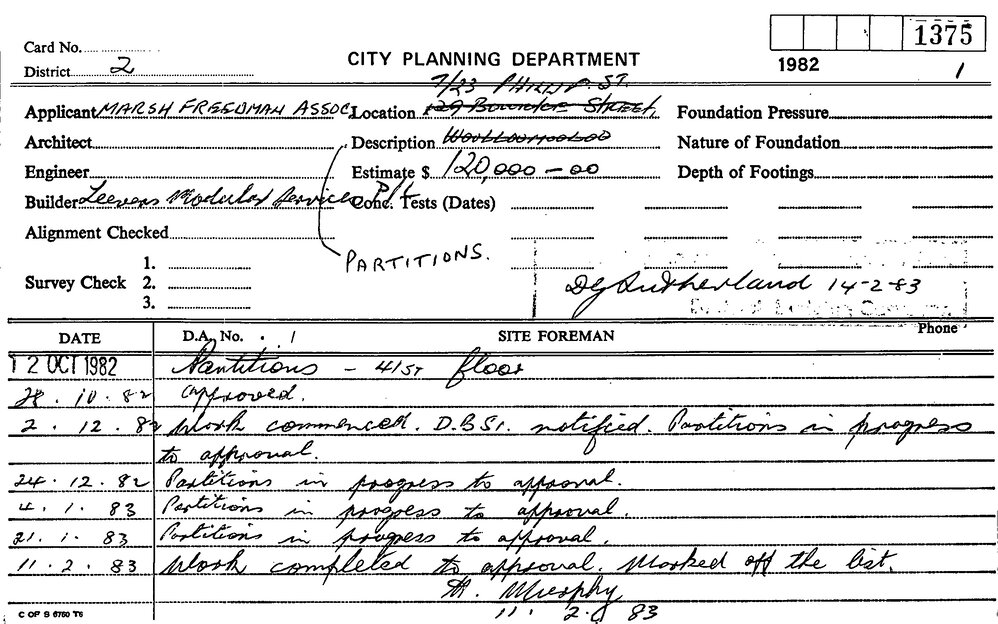 1375
Card No.
CITY PLANNING DEPARTMENT
1982 1
District 2
7/23 PHILLIP. ST.
Applicant MARSH FREEDMAN ASSOC. Location 129 Bourke Street, Foundation Pressure
Architect Description Woolloomooloo Nature of Foundation
Engineer Estimate $ 120,000-00 Depth of Footings
Builder Leevers Modular Services P/L Conc. Tests (Dates)
Alignment Checked
PARTITIONS.
Survey Check 1.
2.
3.
DG Sutherland 14-2-83
Phone
DATE D.A. No. SITE FOREMAN
12 OCT 1982 Partitions - 41ST floor
28.10.82 approved.
2.12.82 Work commenced. D.B.S. notified. Partitions in progress
to approval.
24.12.82 Partitions in progress to approval.
4.1.83 Partitions in progress to approval.
21.1.83 Partitions in progress to approval.
11.2.83 Work completed to approval. Marked off the list.
Murphy
11.2.83
C OF S 6750 T6